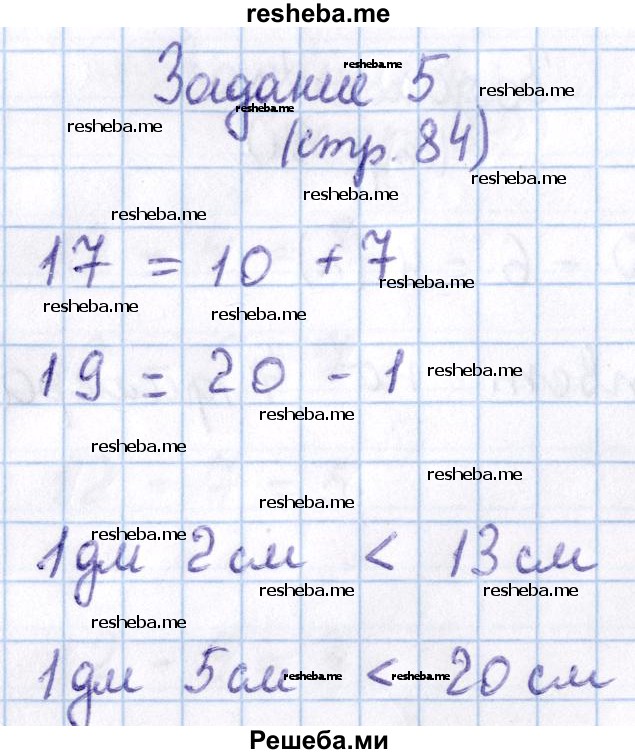 resheba.me
Задание 5
resheba.me
resheba.me
resheba.me
resheba.me
(стр. 84)
resheba.me
resheba.me
resheba.me
17 = 10 + 7
resheba.me
resheba.me
resheba.me
19 = 20 - 1
resheba.me
resheba.me
resheba.me
resheba.me
resheba.me
resheba.me
1 дм 2 см < 13 см
resheba.me
resheba.me
resheba.me
1 дм 5 см < 20 см
resheba.me
resheba.me
Решеба.ми